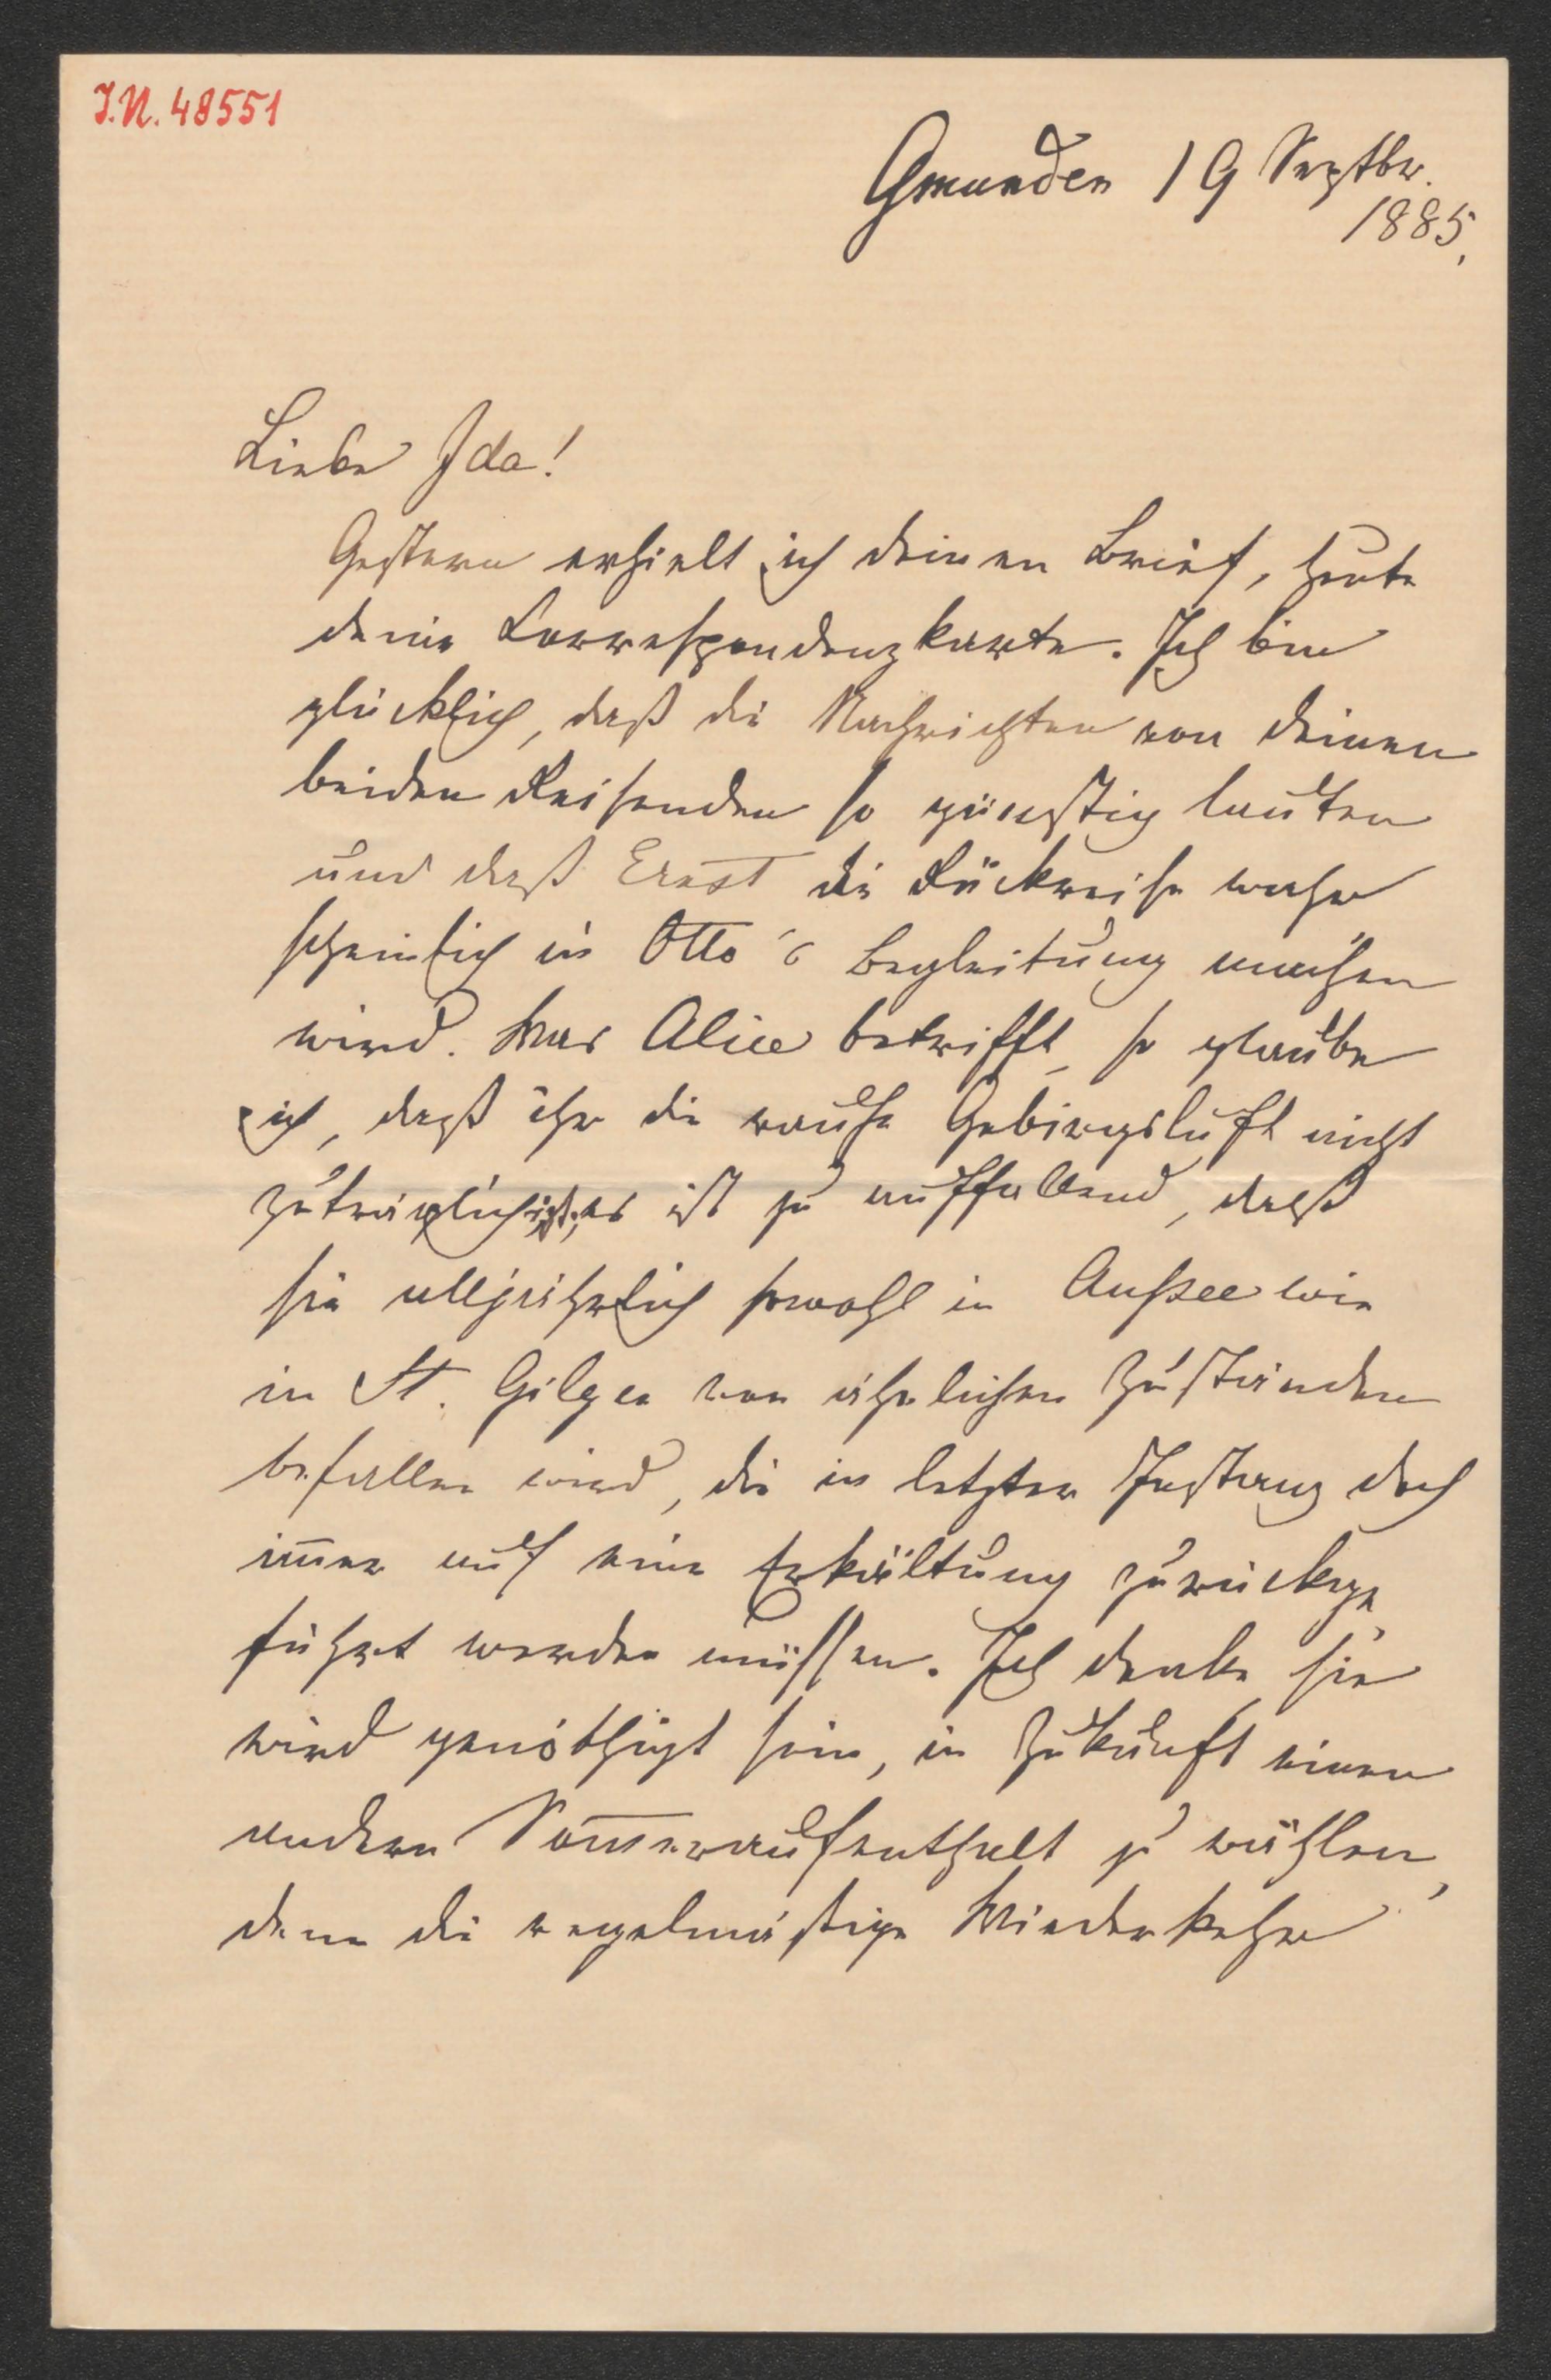 I.N. 48551
Gmunden 19 Septbr.
1885.
Liebe Ida!
Gestern erhielt ich deinen Brief, heute
deine Correspondenzkarte. Ich bin
glücklich, daß die Nachrichten von deinen
beiden Reisenden so günstig lauten
und daß Ernst die Rückreise wahr
scheinlich in Otto's Begleitung machen
wird. Was Alice betrifft, so glaube
ich, daß ihr die rauhe Gebirgsluft nicht
zuträglich ist; es ist zu auffallend, daß
sie alljährlich sowohl in Aussee wie
in St. Gilgen von ähnlichen Zuständen
befallen wird, die in letzter Instanz doch
im̅er auf eine Erkältung zurückge
führt werden müssen. Ich denke sie
wird genöthigt sein, in Zukunft einen
andern Som̅eraufenthalt zu wählen,
denn die regelmäßige Wiederkehr